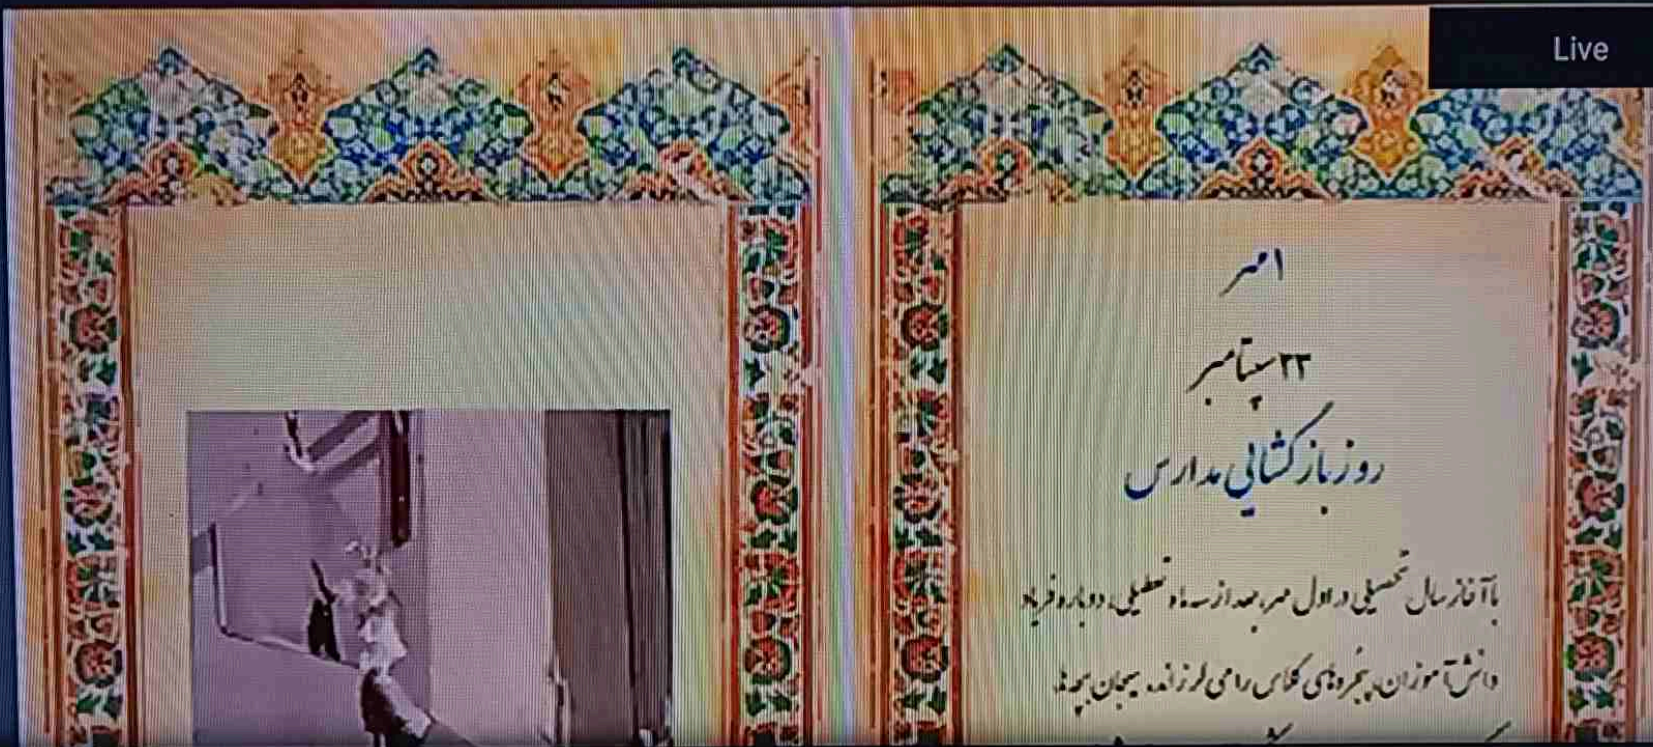 Live
۱ مهر
۲۳ سپتامبر
روز بازگشائی مدارس
با آغاز سال تحصیلی در اول مهر، بعد از سه ماه تعطیلی، دوباره فریاد
دانش‌آموزان، پنجره‌های کلاس را می‌لرزاند. هیجان بچه‌ها،